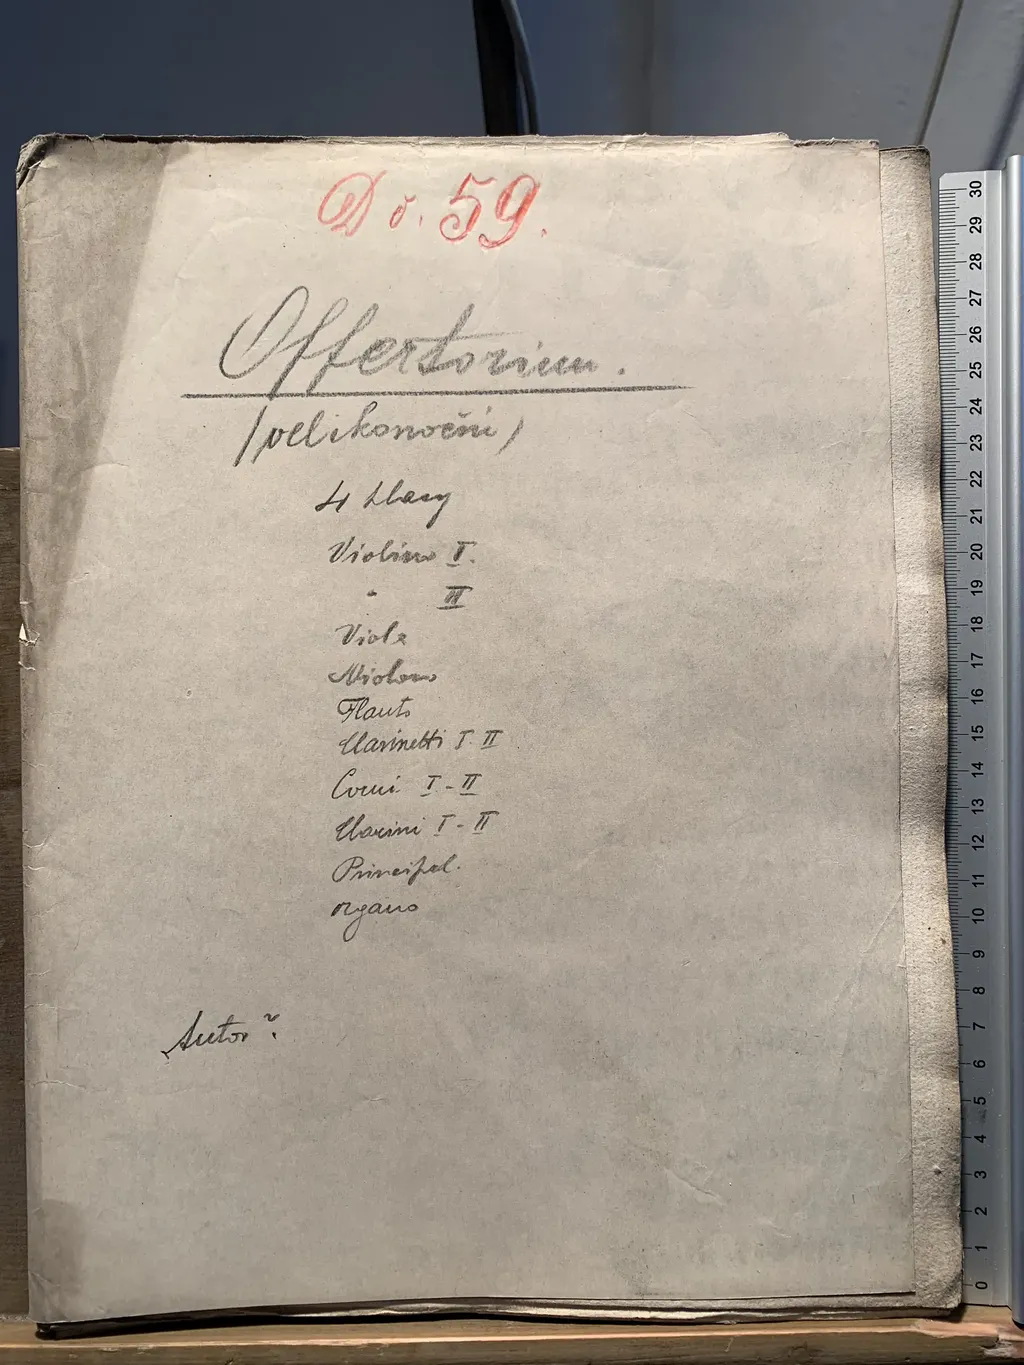 D č. 59.
Offertorium.
/velikonoční/
4 hlasy
Violino I.
" II
Viola
Violono
Flauto
Clarinetti I. II
Corni I - II
Clarini I - II
Principal.
organo
Autor?
30
29
28
27
26
25
24
23
22
21
20
19
18
17
16
15
14
13
12
11
10
9
8
7
6
5
4
3
2
1
0